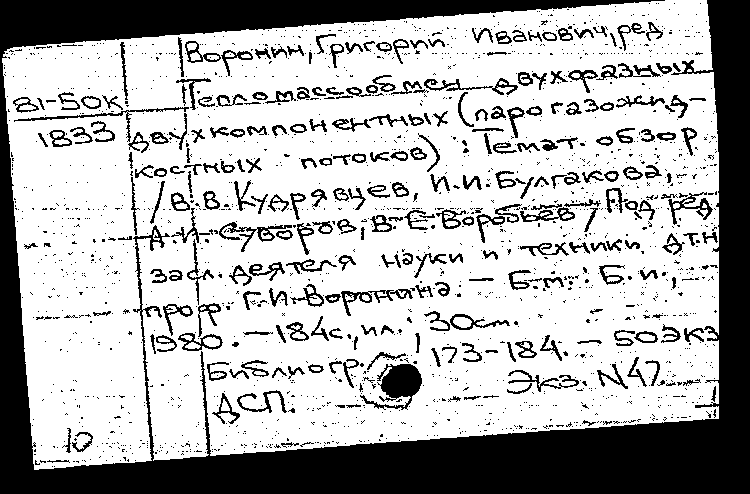 Воронин, Григорий Иванович, ред.
81-50К
Тепломассообмен двухфазных
1833
двухкомпонентных (парогазожид-
костных потоков) : Темат. обзор
/ В.В. Кудрявцев, И.И. Булгакова,
А.И. Суворов, В.Е. Воробьев / Под ред.
засл. деятеля науки и техники д.т.н.
проф. Г.И. Воронина. — Б.м.: Б.и.,
1980. — 184с., ил.; 30см.
Библиогр. 173-184. — 50экз
Экз. N47
ДСП.
10